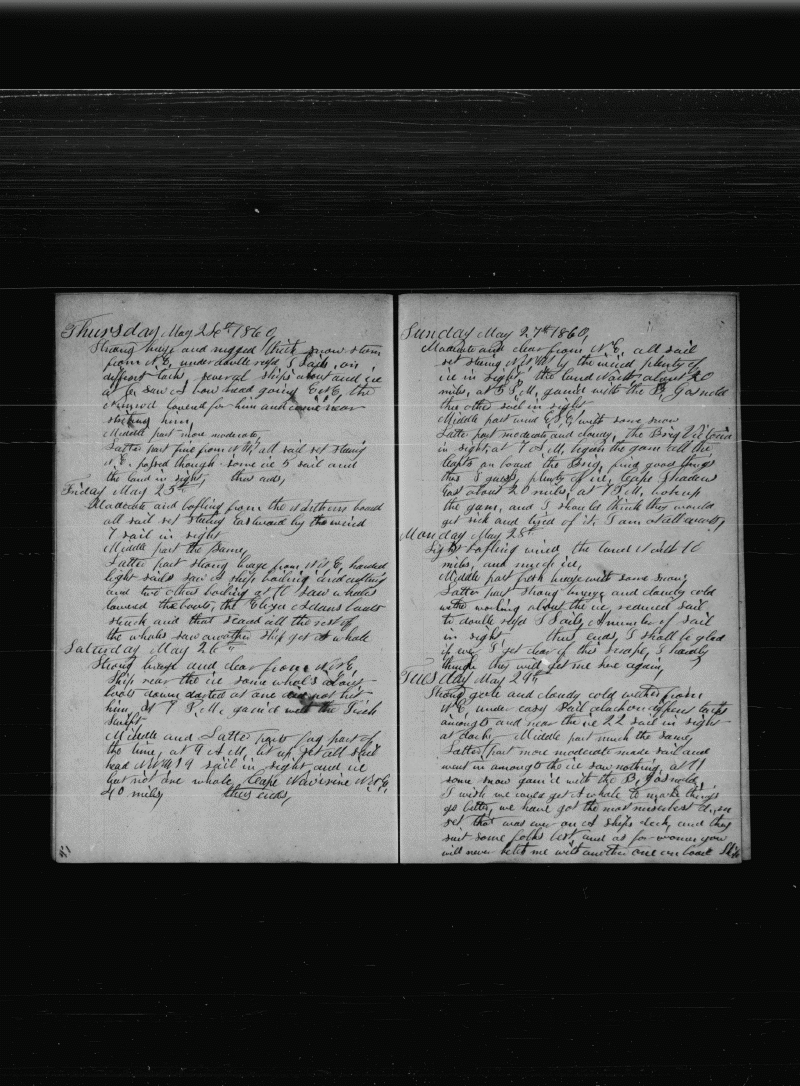 Thursday May 24th 1860,
Strong breeze and rugged thick snow storm
from N.E, under double reefd T Sails, on
different tacks, several ships about and ice
as for saw A bow head going E N E, the
lowered for him and came near
striking him,
Middle part more moderate,
Latter part fine from N W, all sail set steering
N.E. passed though some ice 5 sail and
the land in sight, thus ends,
Friday May 25th
Moderate and bafling from the Northern board
all sail set steering Eastward by the wind
7 sail in sight
Middle part the same,
Latter part strong breeze from N N E, handed
light sails saw A ship boiling and cutting
and two others boiling at 10 saw whales
lowered the boats, the Eliza Adams boats
struck and that scared all the rest of
the whales saw another ship get A whale
Saturday May 26 "
Strong breeze and clear from N N E,
Ship near the ice some whale's about
boats down darted at one did not hit
him, at 7 P.M, gam'd with the
Swift
Middle and Latter parts fog part of
the time, at 9 A M, lit up set all sail
head N N W 19 sail in sight and ice
but not one whale, Cape Navirine N N E,
40 miles thus ends,
Sunday May 27th 1860,
Moderate and clear from N E, all sail
set steering N N W by the wind plenty of
ice in sight, the land North about 20
miles, at 5 P M, gam'd with the B, Gosnold
this other sail in sight
Middle part wind E S E, with some snow
Latter part moderate and cloudy, the Brig Victoria
in sight, at 7 A M, began the gam all the
Capts on board the Brig, find good things
there I guess, plenty of ice, Cape Thadeus
East about 20 miles, at 7 P.M, broke up
the gam, and I should think they would
get sick and tired of it, I am at all events,
Monday May 28th
Light bafling wind the land N west 10
miles, and much ice,
Middle part fresh breeze with some snow,
Latter part strong breeze and cloudy cold
weather working about the ice, reduced sail
to double reefd T Sails, A number of sail
in sight thus ends, I shall be glad
if ever I get clear of this scrape, I hardly
think they will get me here again,
Tuesday May 29th
Strong gale and cloudy cold wether from
N E, under easy sail a on diffrent tacks
amongts and near the ice 22 sail in sight
at dark, Middle part much the same,
Latter part more moderate made sail and
went in amongts the ice saw nothing, at 11
some snow gam'd with the B, Gosnold,
I wish we could get A whale to make things
go better, we have got the most miserbest
set that was ever on A ships deck, and they
suit some folks best, and as for women you
will never ketch me with another one on board